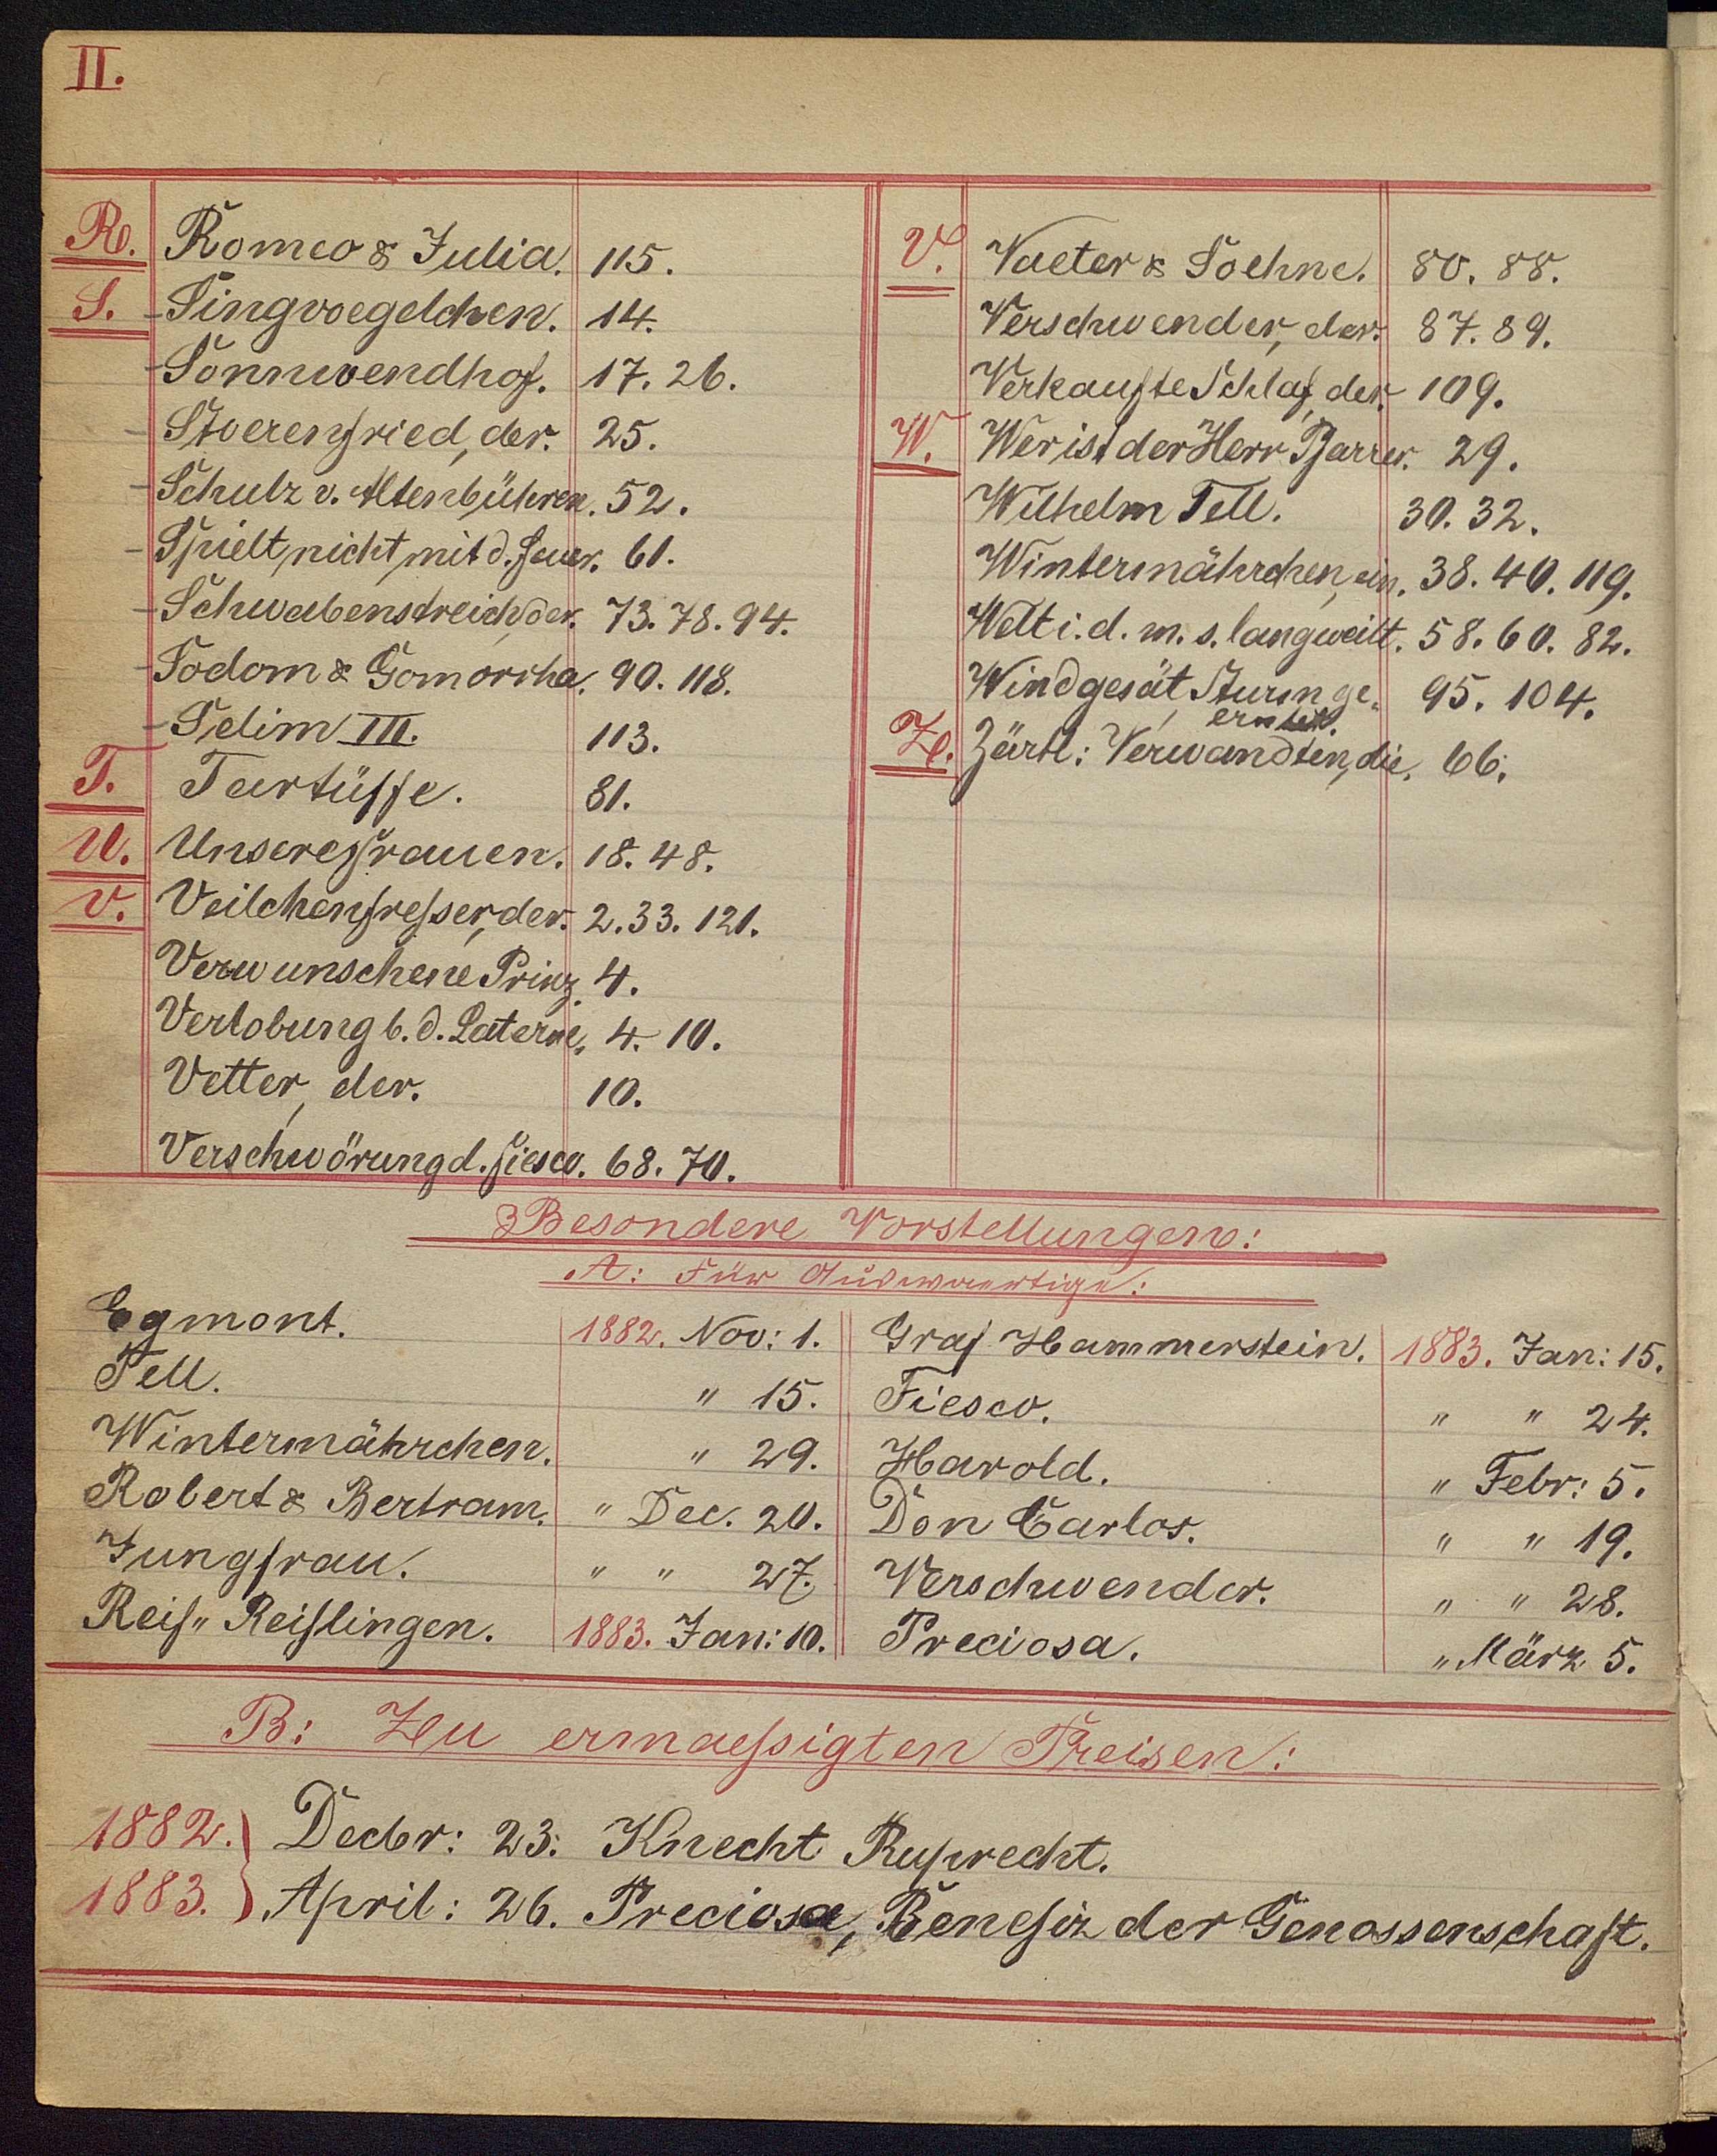 II.
R. Romeo & Julia. 115.
S. Singvoegelchen. 14.
Sonnwendhof. 17. 26.
Stoerenfried, der. 25.
Schulz v. Altenbühren. 52.
Spielt nicht mit d. Feuer. 61.
Schwabenstreich, der. 73. 78. 94.
Sodom & Gomorrha. 90. 118.
Selim III. 113.
T. Tartüffe. 81.
U. Unsere Frauen. 18. 48.
V. Veilchenfreſser, der. 2. 33. 121.
Verwunschene Prinz. 4.
Verlobung b. d. Laterne. 4. 10.
Vetter, der. 10.
Verschwörung d. Fiesco. 68. 70.
V. Vaeter & Soehne. 80. 88.
Verschwender, der. 87. 89.
Verkaufte Schlaf, der. 109.
W. Wer ist der Herr Pfarrer. 29.
Wilhelm Tell. 30. 32.
Wintermährchen, ein. 38. 40. 119.
Welt i. d. m. s. langweilt. 58. 60. 82.
Wind gesät, Sturm ge- 95. 104.
erntet.
Z. Zärtl: Verwandten, die. 66.
Besondere Vorstellungen:
A: Für Auswaertige:
Egmont. 1882. Nov: 1.
Tell. " 15.
Wintermährchen. " 29.
Robert & Bertram. " Dec. 20.
Jungfrau. " " 27.
Reif" Reiflingen. 1883. Jan: 10.
Graf Hammerstein. 1883. Jan: 15.
Fiesco. " " 24.
Harold. " Febr: 5.
Don Carlos. " " 19.
Verschwender. " " 28.
Preciosa. " März 5.
B: Zu ermaeſsigten Preisen:
1882. Decbr: 23. Knecht Ruprecht.
1883. April: 26. Preciosa, Benefiz der Genossenschaft.